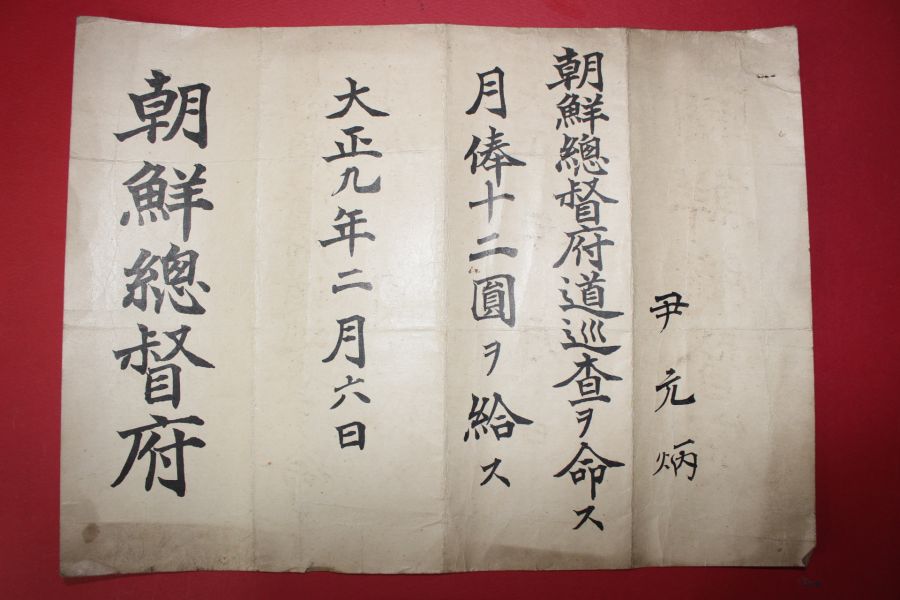 尹元炳
朝鮮總督府道巡查ヲ命ス
月俸十二圓ヲ給ス
大正九年二月六日
朝鮮總督府